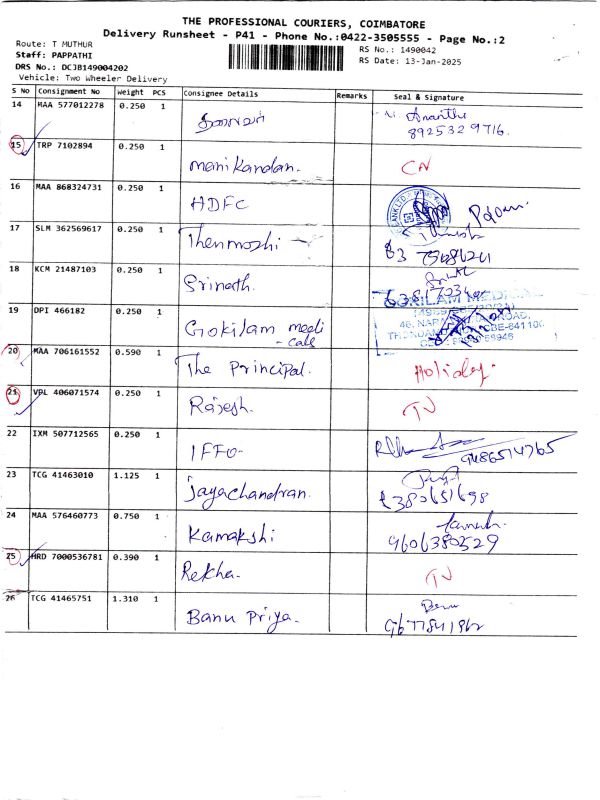 THE PROFESSIONAL COURIERS, COIMBATORE
Delivery Runsheet - P41 - Phone No.:0422-3505555 - Page No.:2
Route: T MUTHUR
RS No.: 1490042
Staff: PAPPATHI
RS Date: 13-Jan-2025
DRS No.: DCJB149004202
Vehicle: Two Wheeler Delivery
S No Consignment No Weight PCS Consignee Details Remarks Seal & Signature
14 MAA 577012278 0.250 1 தலைவர்
8925329716.
15 TRP 7102894 0.250 1 manikandan. CN
16 MAA 868324731 0.250 1 HDFC
17 SLM 362569617 0.250 1 Thenmozhi
18 KCM 21487103 0.250 1 Srinath.
19 DPI 466182 0.250 1 Gokilam medi
- cals
20 MAA 706161552 0.590 1 The Principal. Holiday.
21 VPL 406071574 0.250 1 Rajesh. TN
22 IXM 507712565 0.250 1 IFFO- 9486514765
23 TCG 41463010 1.125 1 Jayachandran. 6380651698
24 MAA 576460773 0.750 1 Kamakshi 9606380529
25 HRD 7000536781 0.390 1 Rekha. TN
26 TCG 41465751 1.310 1 Banu Priya. 9677841962